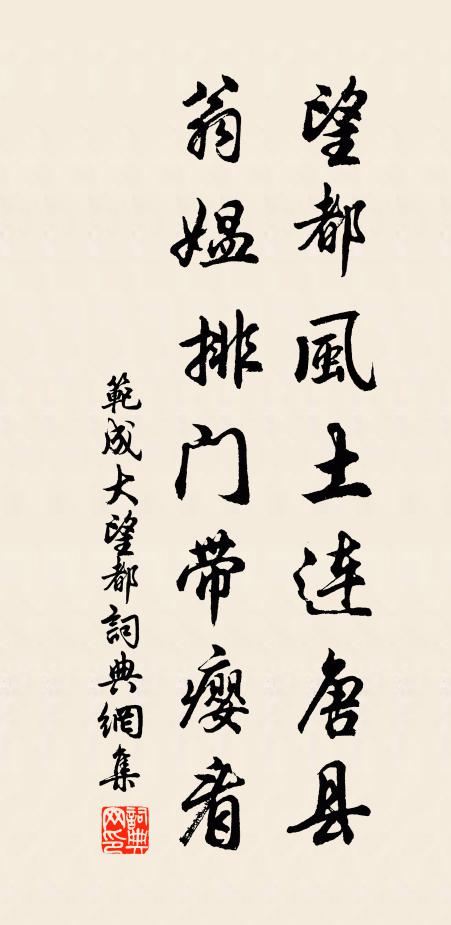 望都風土連唐县
翁媪排门帶瘿看
範成大望都詞典網集
詞典网印